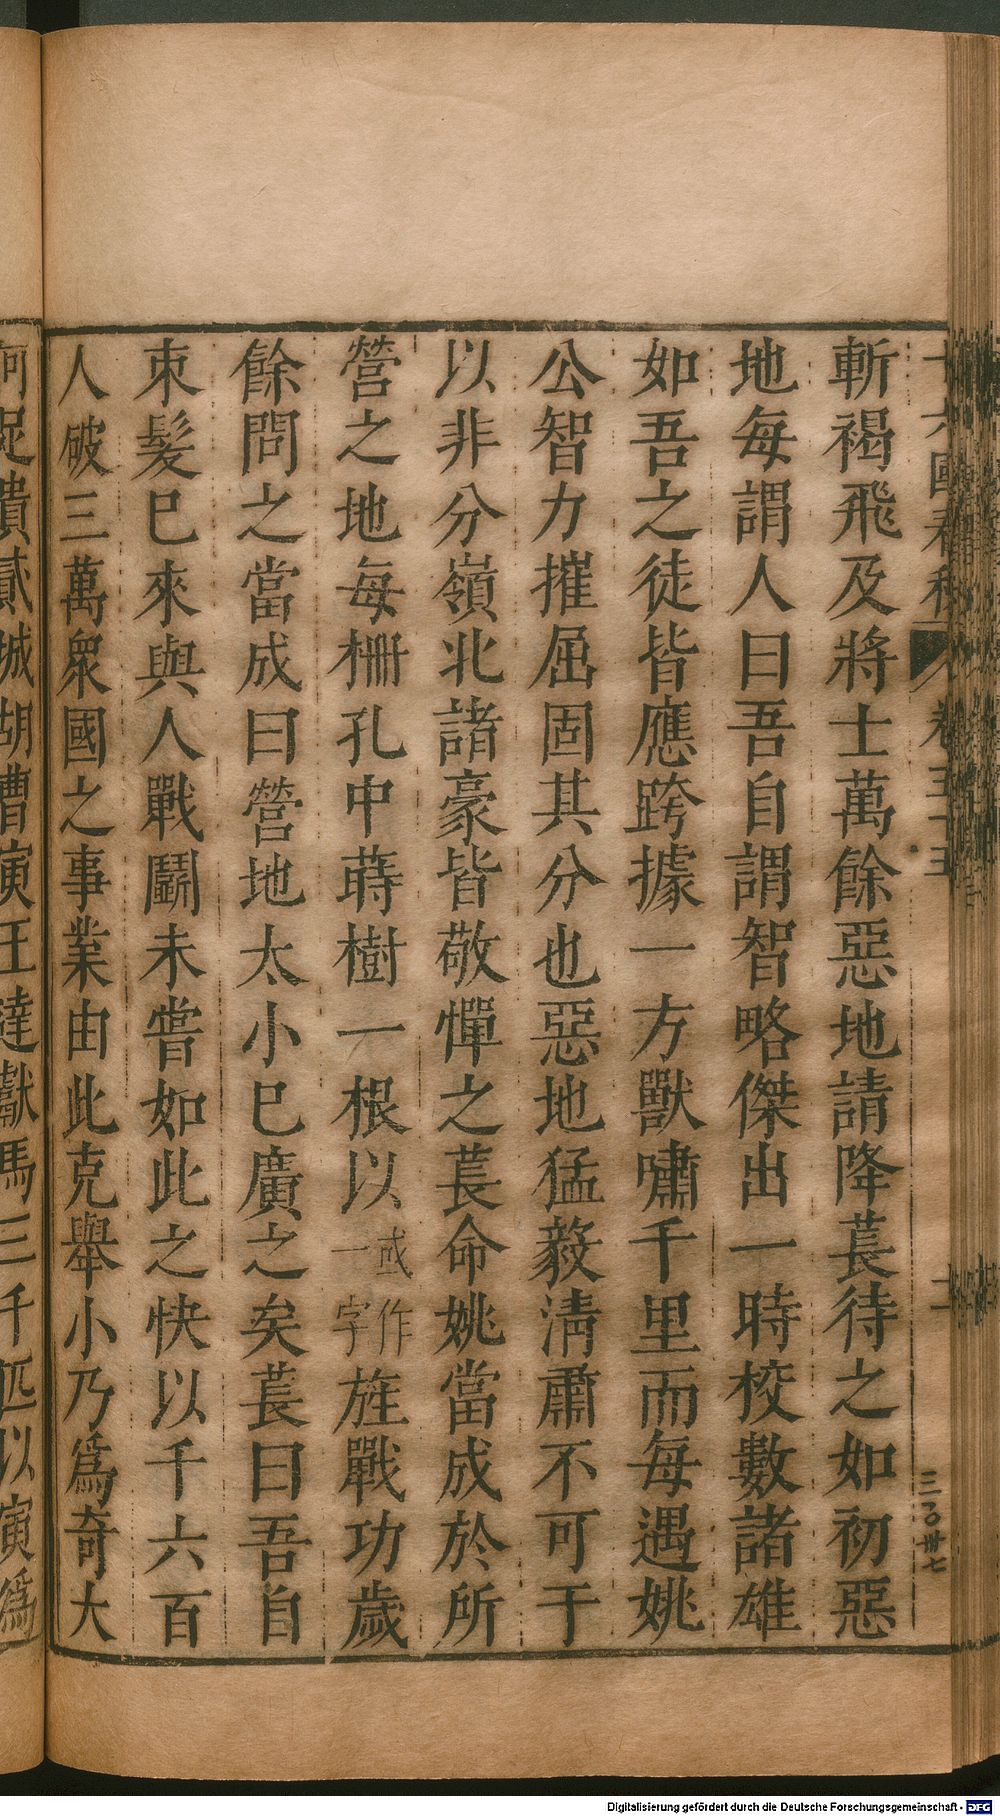 斬褐飛及將士萬餘惡地請降萇待之如初惡
地每謂人曰吾自謂智略傑出一時校數諸雄
如吾之徒皆應跨據一方獸嘯千里而每遇姚
公智力摧屈固其分也惡地猛毅清肅不可于
以非分嶺北諸豪皆敬憚之萇命姚當成於所
營之地每柵孔中蒔樹一根以或作一字旌戰功歲
餘問之當成曰營地太小已廣之矣萇曰吾自
束髮已來與人戰鬬未嘗如此之快以千六百
人破三萬衆國之事業由此克舉小乃爲奇大
三〇卅七
Digitalisierung gefördert durch die Deutsche Forschungsgemeinschaft - DFG